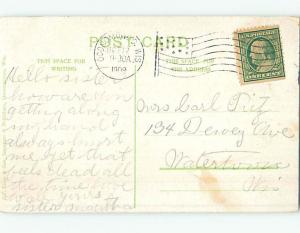 POST CARD
THIS SPACE FOR
WRITING
THIS SPACE FOR
THE ADDRESS
WIS
1909
ONE CENT
Hello sister
how are you
getting along
my hand
always
me yet that
feels dead all
the time love
to all yours
sister Martha
Mrs Carl
134 Dewey Ave
Watertown
Wis